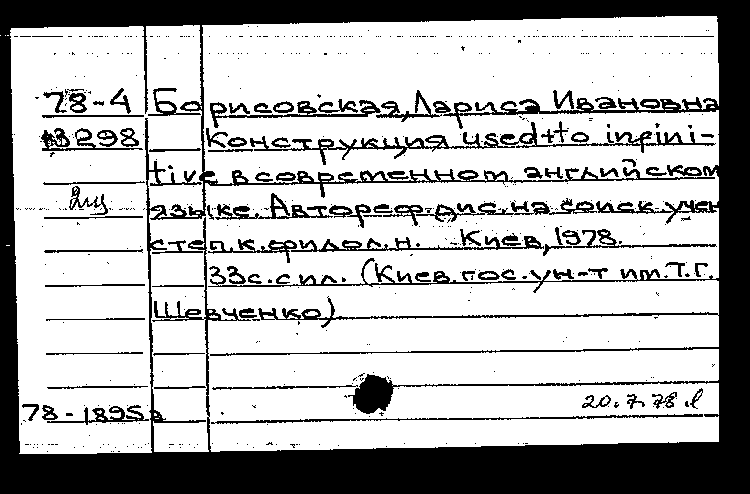 78-4 Борисовская, Лариса Ивановна
3298 Конструкция used+to infini-
tive в современном английском
языке. Автореф. дис. на соиск. учен
степ. к. филол. н. Киев, 1978.
33с. с ил. (Киев. гос. ун-т им. Т.Г.
Шевченко).
78-1895
20.7.78